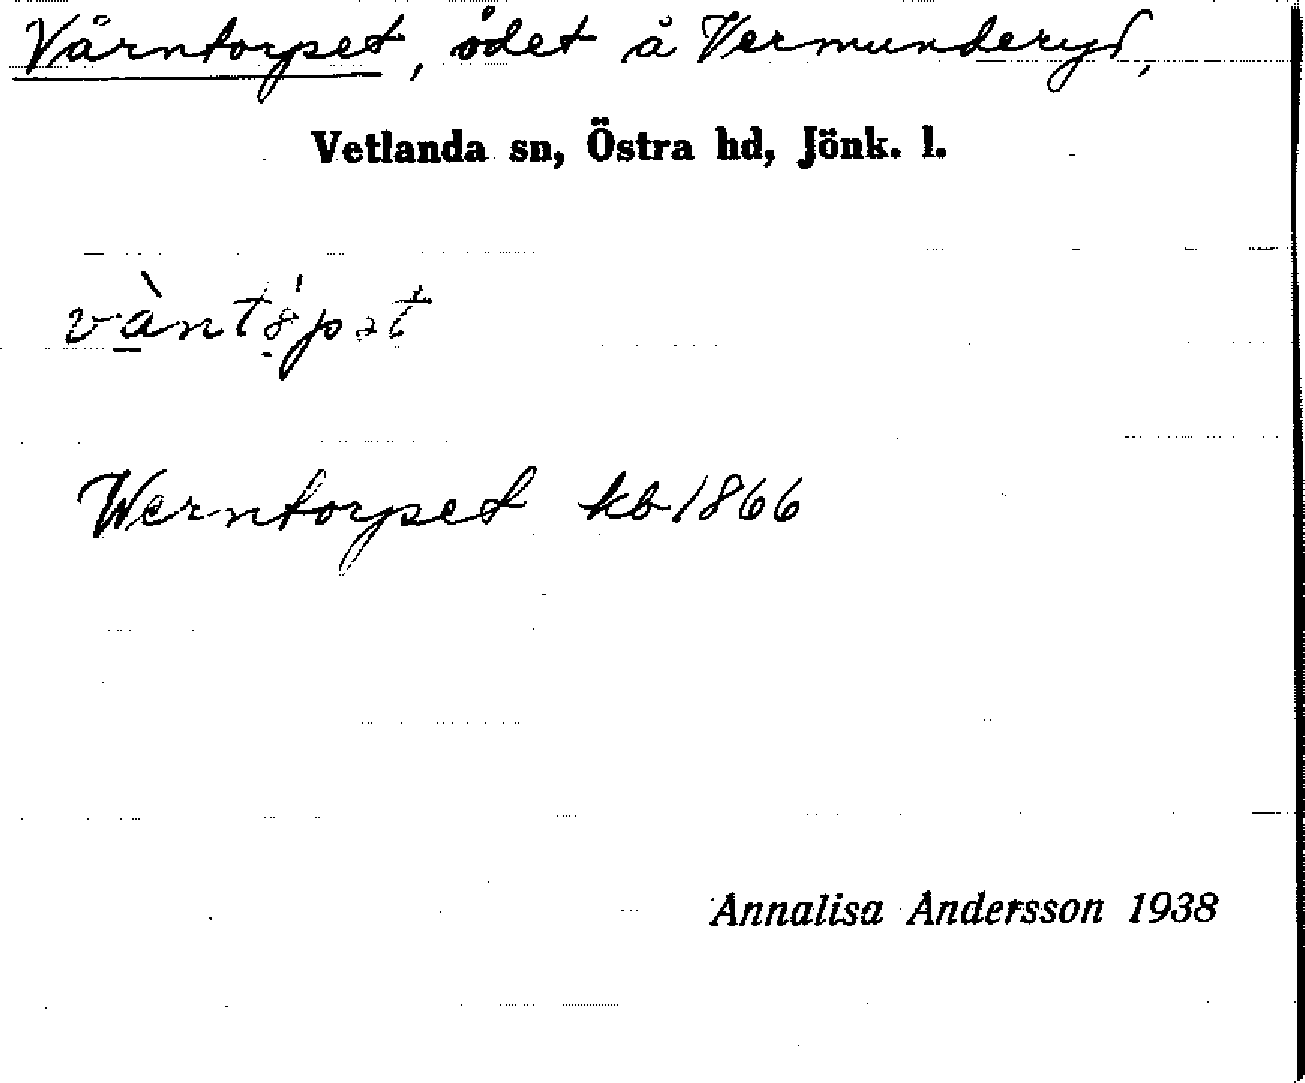 Värntorpet, ödet å Vermunderyd,
Vetlanda sn, Östra hd, Jönk. l.
Werntorpet kb 1866
Annalisa Andersson 1938